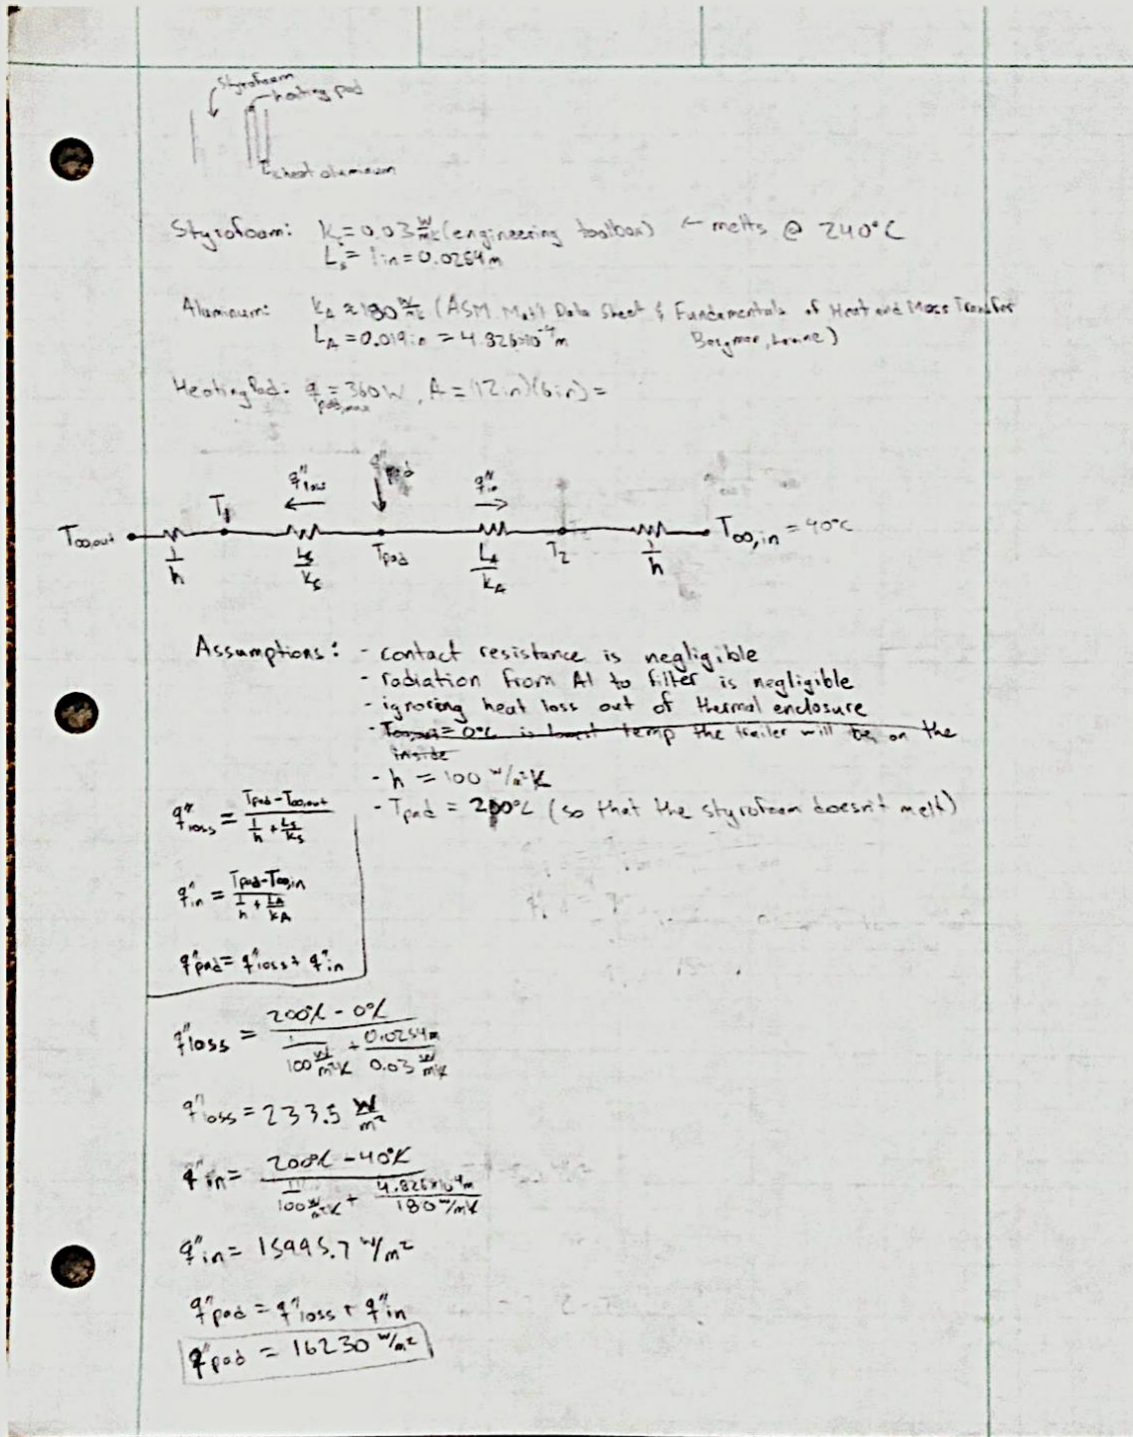 Styrofoam
heating pad
sheet aluminum
Styrofoam: kₛ = 0.03 W/mK (engineering toolbox) ← melts @ 240°C
Lₛ = 1in = 0.0254m
Aluminum: k_A ≈ 180 W/mK (ASM Mat'l Data Sheet & Fundamentals of Heat and Mass Transfer
L_A = 0.019in = 4.826×10⁻⁴m Bergman, Lavine)
Heating Pad: q_pad,max = 360W, A = (12in)(6in) =
q"loss q"pad q"in
T∞,out T₁ Tpad T₂ T∞,in = 40°C
1/h Lₛ/kₛ L_A/k_A 1/h
Assumptions: - contact resistance is negligible
- radiation from Al to filter is negligible
- ignoring heat loss out of thermal enclosure
- T∞,out = 0°C is lowest temp the trailer will be on the
inside
- h = 100 W/m²K
- Tpad = 200°C (so that the styrofoam doesn't melt)
q"loss = (Tpad - T∞,out)/(1/h + Lₛ/kₛ)
q"in = (Tpad - T∞,in)/(1/h + L_A/k_A)
q"pad = q"loss + q"in
q"loss = (200°C - 0°C)/(1/(100 W/m²K) + 0.0254m/(0.03 W/mK))
q"loss = 233.5 W/m²
q"in = (200°C - 40°C)/(1/(100 W/m²K) + 4.826×10⁻⁴m/(180 W/mK))
q"in = 15995.7 W/m²
q"pad = q"loss + q"in
q"pad = 16230 W/m²